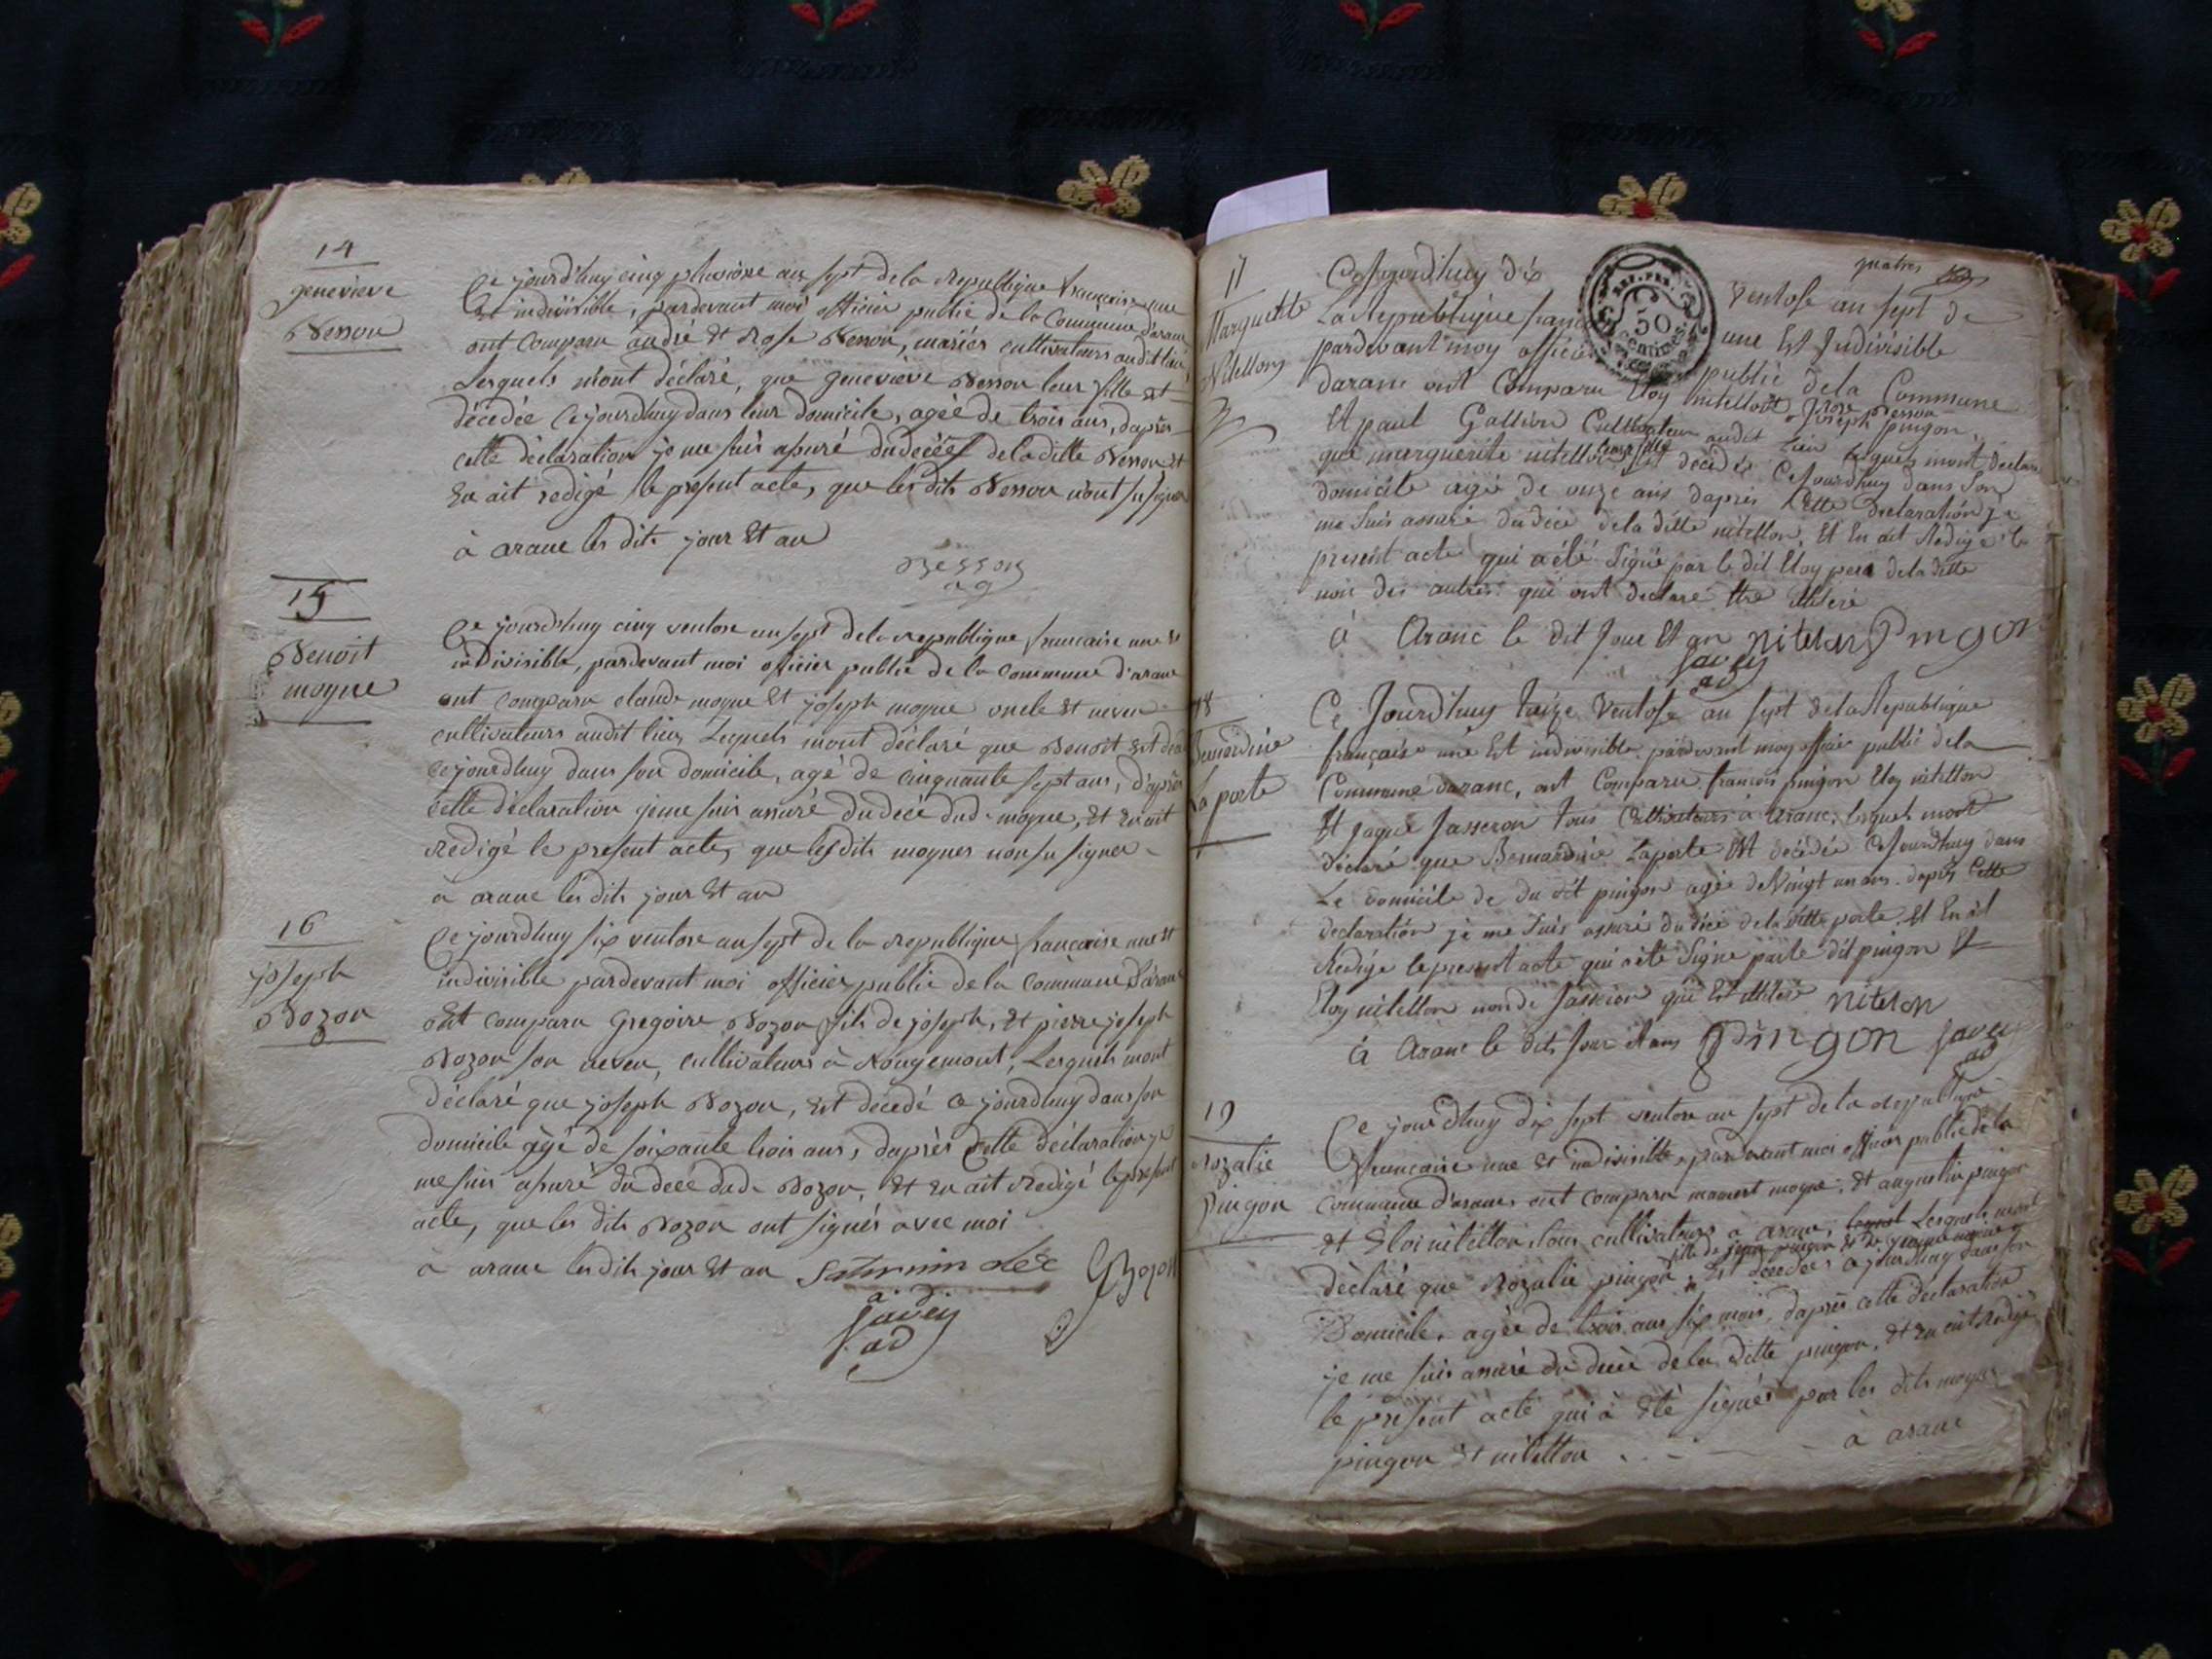 14
genevieve
Besson
Ce jourd'huy cinq pluviose an sept de la republique francaise une
Et indivisible, pardevant moi officier public de la Commune d'aranc
ont comparu andré Et Rose Besson, mariés cultivateurs audit lieu,
Lesquels m'ont déclaré, que genevieve Besson leur fille est
décédée Cejourdhuy dans leur domicile, agée de trois ans, daprès
cette déclaration je me suis assuré du decès de la ditte Besson Et
En ait redigé le present acte, que les dits Besson n'ont su signer
à aranc les dits jour Et an
Besson
ag
15
Benoit
moyne
Ce jourdhuy cinq ventose an sept de la republique francaise une Et
indivisible, pardevant moi officier public de la commune d'aranc
ont comparu claude moyne Et joseph moyne oncle Et neveu
cultivateurs audit lieu, Lesquels mont déclaré que Benoit est
cejourdhuy dans son domicile, agé de cinquante sept ans, d'après
cette déclaration je me suis assuré du decé dud. moyne, Et En ait
Redigé le present acte, que lesdits moynes non su signer
a aranc les dits jour Et an
16
joseph
Bozon
Ce jourdhuy six ventose an sept de la republique francaise une Et
indivisible pardevant moi officier public de la commune d'aranc
ont comparu Gregoire Bozon fils de joseph, Et pierre joseph
Bozon son neveu, cultivateurs à Rougemont, Lesquels mont
déclaré que joseph Bozon, Est décédé ce jourdhuy dans son
domicile agé de soixante trois ans, daprès cette déclaration je
me suis assuré du decé dud. Bozon, Et En ait Redigé le present
acte, que les dits Bozon ont signés avec moi
à aranc les dits jour Et an
GBozon
Savey
ad
17
Marguerite
Nitellon
quatres
Cejourdhuy dix ventose an sept de
REP. FRA.
50
centimes
La Republique francaise une Est Indivisible
pardevant moy officier public dela Commune
daranc ont Comparu Eloy nitellon Joseph pingon,
Rose Besson
Et paul Gallion Cultivateur audit lieu lesquels mont declaré
que marguerite nitellon leur fille Est décédée Cejourdhuy dans son
domicile agé de onze ans daprès Cette Declaration je
me suis assuré du décé dela ditte nitellon, Et En ait Redigé le
present acte qui a été signé par le dit Eloy pere dela ditte
non des autres qui ont declaré être illiteré
à Aranc le dit Jour Et an nitelon Pingon
Savey
ad
18
Bernardine
La porte
Ce Jourdhuy treize Ventose an sept dela Republique
française une Est indivisible pardevant moy officier public dela
Commune daranc, ont Comparu francois pingon Eloy nitellon
Et Jaque Jasseron tous Cultivateurs à Aranc, lesquels mont
déclaré que Bernardine Laporte Est décédée Cejourdhuy dans
Le domicile de du dit pingon agée de Vingt un ans. daprès Cette
declaration je me suis assuré du décé de la ditte porte. Et En ait
Redige le present acte qui a été Signé par le dit pingon Et
Eloy nitellon non de Jasseron qui Est illiteré nitelon
à Aranc le dit Jour et ans Pingon Savey
ad
19
Rozalie
pingon
Ce jourdhuy dix sept ventose an sept de la republique
francaise une Et indivisible, pardevant moi officier public de la
commune d'aranc ont comparu moyne, Et augustin pingon
Et Eloi nitellon tous cultivateurs à aranc, Lesquels mont
déclaré que Rozalie pingon Est décédée cejourdhuy dans son
Domicile, agée de trois ans six mois, daprès cette déclaration
je me suis assuré du decè de la ditte pingon, Et En ait Redigé
le present acte qui à Eté signés par les dits moyne
pingon Et nitellon à aranc